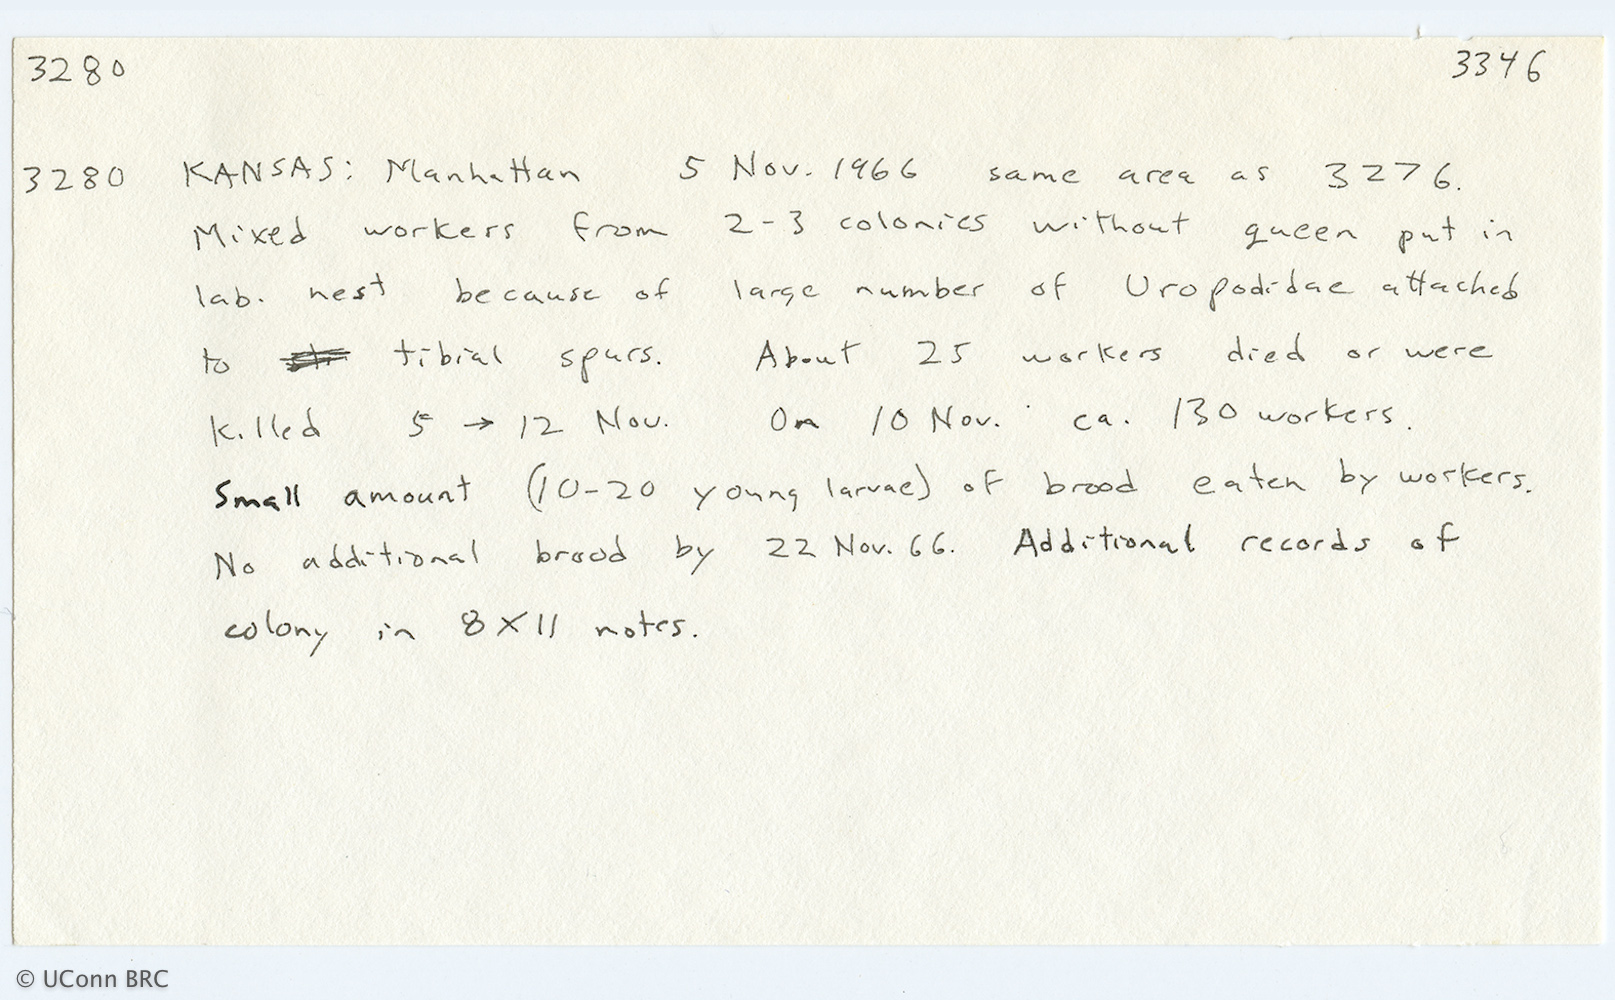 3280 3346
3280 KANSAS: Manhattan 5 Nov. 1966 same area as 3276.
Mixed workers from 2-3 colonies without queen put in
lab. nest because of large number of Uropodidae attached
to tibial spurs. About 25 workers died or were
killed 5 → 12 Nov. On 10 Nov. ca. 130 workers.
Small amount (10-20 young larvae) of brood eaten by workers.
No additional brood by 22 Nov. 66. Additional records of
colony in 8 X 11 notes.
© UConn BRC